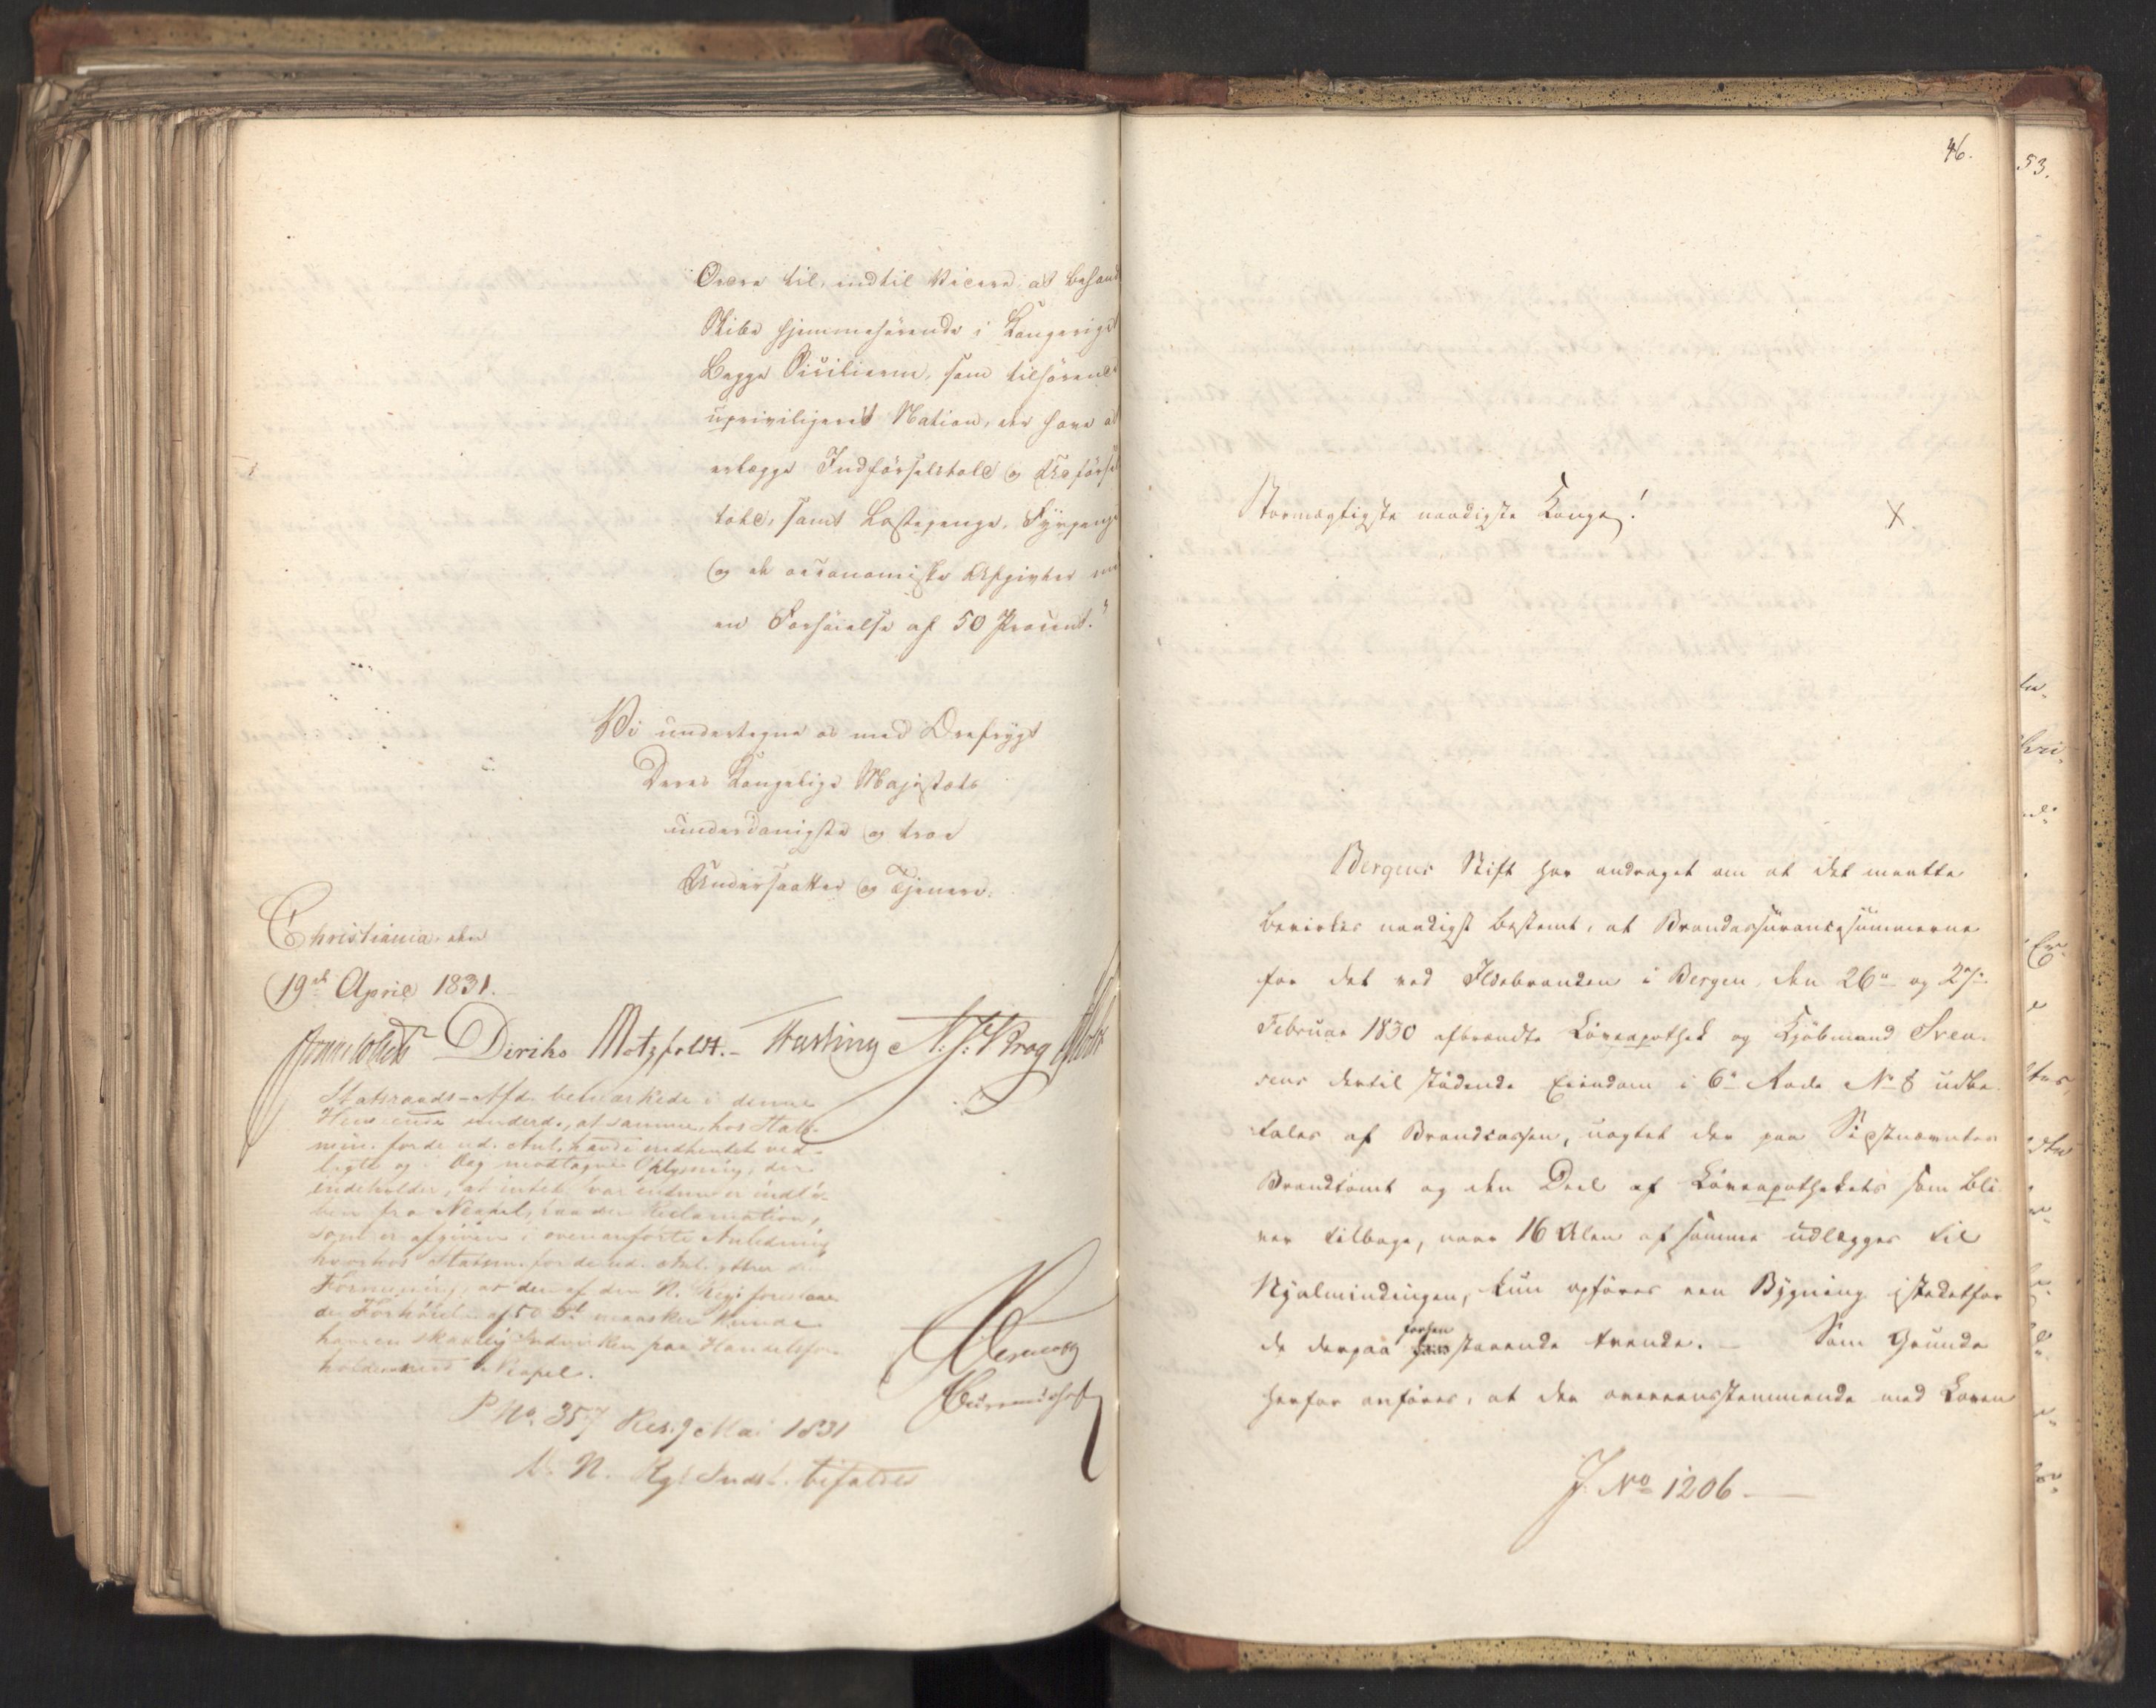 Ordre til, indtil videre at behand
Skibe hjemmehørende i Kongeriget
Begge Sicilierne, som tilhørende
upriviligeret Nation, der have at
erlægge Indførselstold og Udførsels
told, samt Lastepenge, Fyrpenge
og de oeconomiske Afgivter med
en Forhøielse af 50 Procent."
Vi undertegne os med Ærefrygt
Deres Kongelige Majestæts
underdanigste og troe
Undersaatter og Tjenere.
Christiania, den
19de April 1831.
Diriks Motzfeldt. Fasting N. J. Krog
Statsraads-Afd. bemærkede i denne
Henseende underd., at samme hos Stats-
min. for de ud. Anl. havde indhentet ved-
lagte og i Dag modtagne Oplysning, der
indeholder, at intet Svar endnu er indlø-
ben fra Neapel, paa den Reclamation,
som er afgiven i ovenanførte Anledning
hvorhos Statsm. for de ud. Anl. yttrer den
Formening, at den af den N. Regj. foreslaae
de Forhøielse af 50 Pct maaskee kunde
have en skadelig Indvirkn paa Handelsfor-
holdene med Neapel.
P No. 357 Res. 9 Mai 1831
D. N. Rgs Indst. bifaldes
46.
53.
Stormægtigste naadigste Konge!
X.
Bergens Stift har andraget om at det maatte
bevirkes naadigst bestemt, at Brandassurancesummerne
for det ved Ildebranden i Bergen den 26de og 27de
Februar 1830 afbrændte Løveapothek og Kjøbmand Sven-
sens dertil stødende Eiendom i 6te Rode No 8 udbe-
tales af Brandcassen, uagtet der paa Sidstnævntes
Brandtomt og den Deel af Løveapothekets som bli-
ver tilbage, naar 16 Alen af samme udlægges til
Nyalmindingen, kun opføres een Bygning istedetfor
de derpaa forhen staaende trende. – Som Grunde
herfor anføres, at der overeensstemmende med Loven
J. No 1206 —